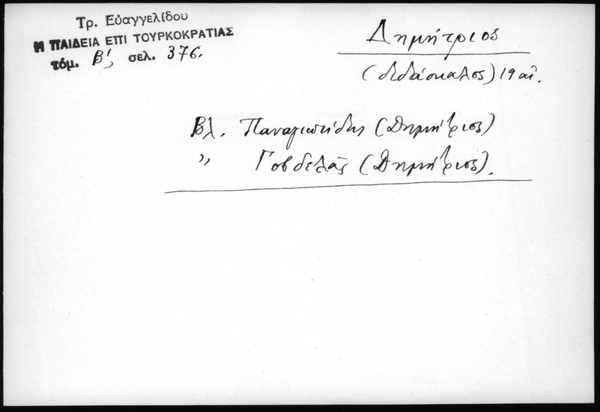 Τρ. Εὐαγγελίδου
Η ΠΑΙΔΕΙΑ ΕΠΙ ΤΟΥΡΚΟΚΡΑΤΙΑΣ
τόμ. Β', σελ. 376.
Δημήτριος
(διδάσκαλος) 19 αἰ.
Βλ. Παναγιωτίδης (Δημήτριος)
〃 Γοβδελᾶς (Δημήτριος).